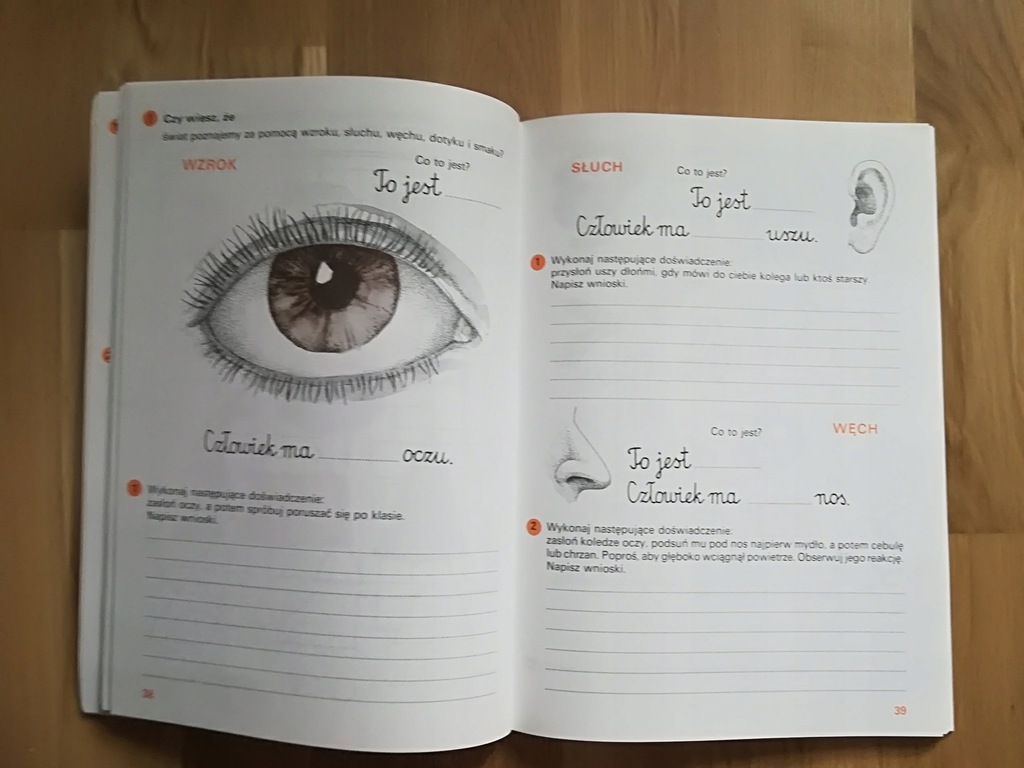 Czy wiesz, że
świat poznajemy za pomocą wzroku, słuchu, węchu, dotyku i smaku?
WZROK
Co to jest?
To jest
Człowiek ma oczu.
1 Wykonaj następujące doświadczenie:
zasłoń oczy, a potem spróbuj poruszać się po klasie.
Napisz wnioski.
38
SŁUCH
Co to jest?
To jest
Człowiek ma uszu.
1 Wykonaj następujące doświadczenie:
przysłoń uszy dłońmi, gdy mówi do ciebie kolega lub ktoś starszy.
Napisz wnioski.
Co to jest?
WĘCH
To jest
Człowiek ma nos.
2 Wykonaj następujące doświadczenie:
zasłoń koledze oczy, podsuń mu pod nos najpierw mydło, a potem cebulę
lub chrzan. Poproś, aby głęboko wciągnął powietrze. Obserwuj jego reakcję.
Napisz wnioski.
39